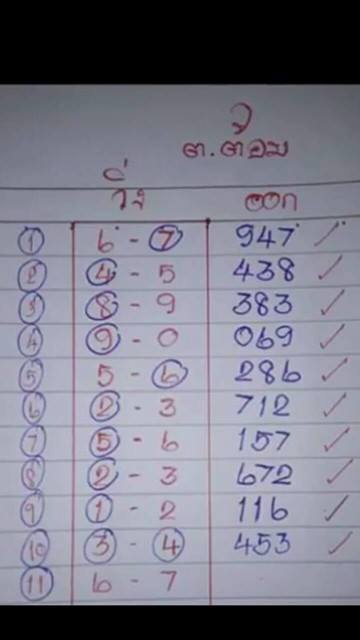 ต.ต้อม
วิ่ง ออก
1 6 - 7 947 ✓
2 4 - 5 438 ✓
3 8 - 9 383 ✓
4 9 - 0 069 ✓
5 5 - 6 286 ✓
6 2 - 3 712 ✓
7 5 - 6 157 ✓
8 2 - 3 672 ✓
9 1 - 2 116 ✓
10 3 - 4 453 ✓
11 6 - 7